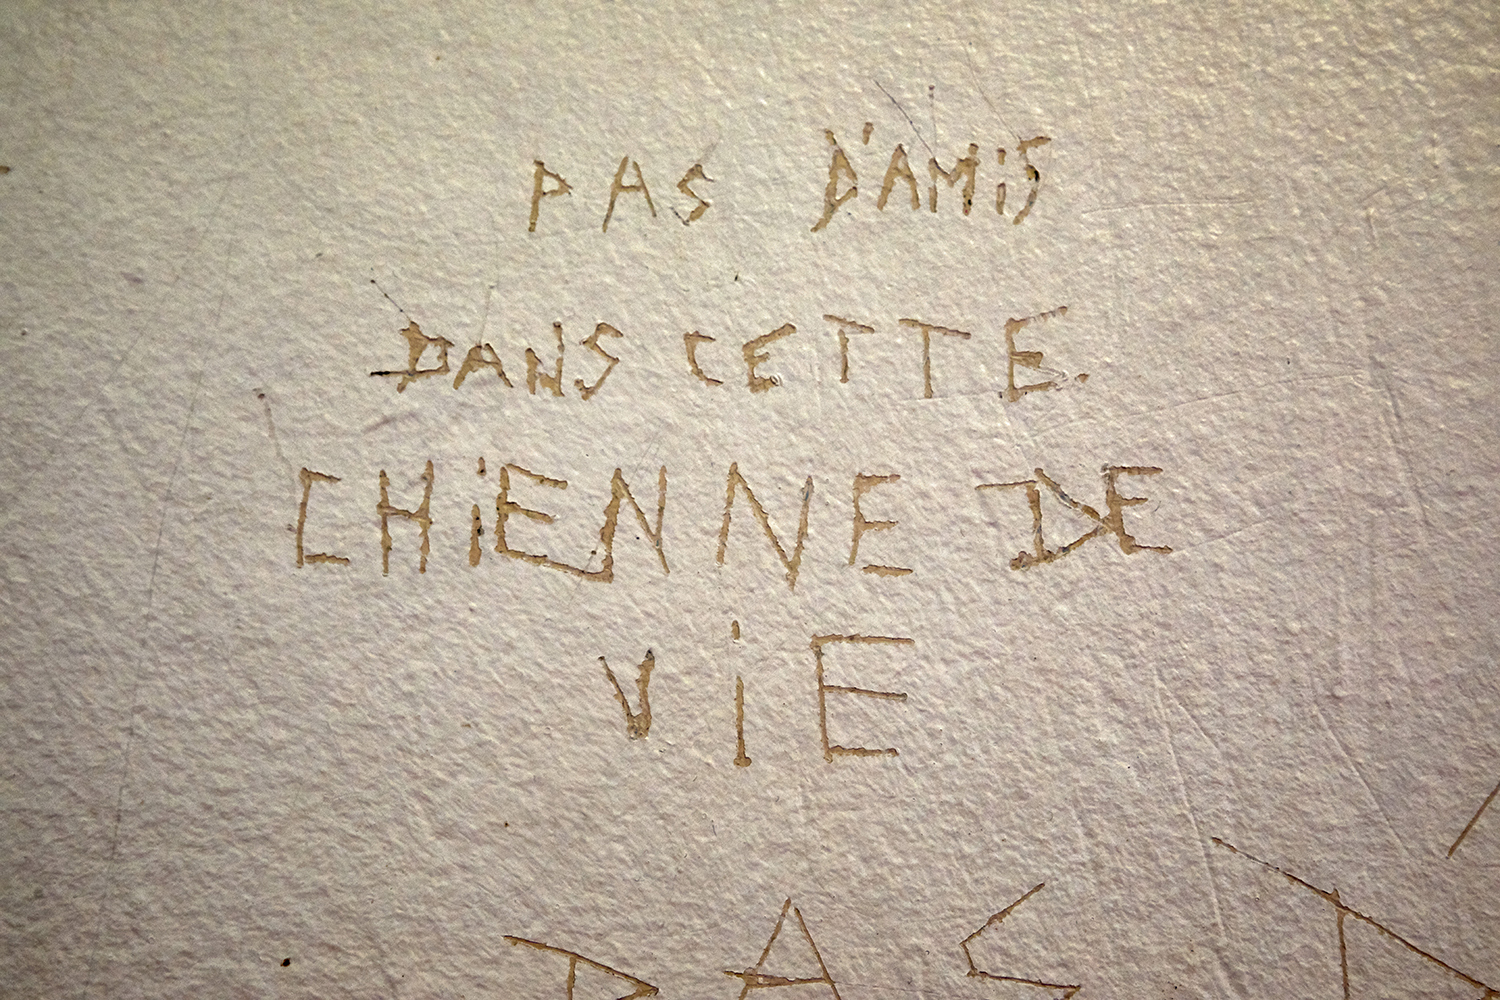 PAS D'AMiS
DANS CETTE
CHiENNE DE
ViE
PAS